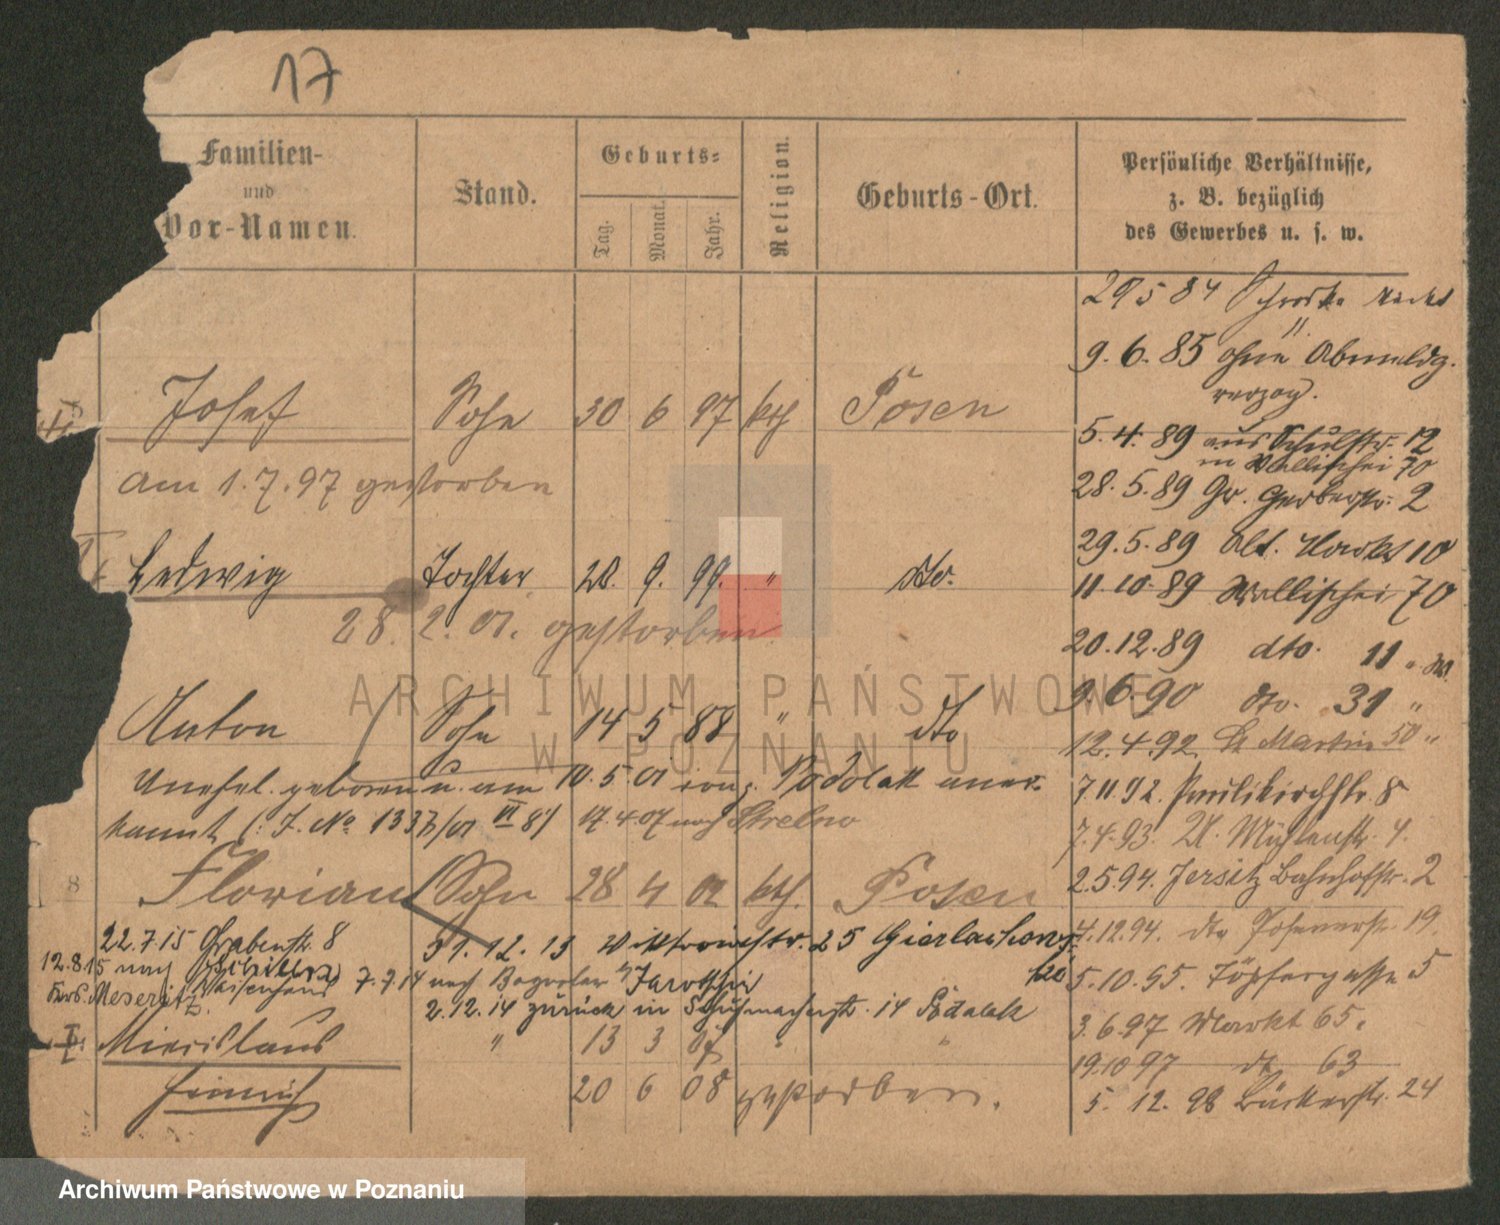 17
Familien-
und
Vor-Namen.
Stand.
Geburts-
Tag.
Monat.
Jahr.
Religion.
Geburts-Ort.
Persönliche Verhältnisse,
z. B. bezüglich
des Gewerbes u. s. w.
29 5 84
9. 6. 85 ohne Abmeldg.
verzog.
5. 4. 89 aus Schulstr. 12
in Wallischei 70
28. 5. 89 Gr. Gerberstr. 2
29. 5. 89 Alt. Markt 10
11. 10. 89 Wallischei 70
20. 12. 89 dto. 11
9. 6. 90 dto. 31 "
12. 4. 92 St Martin 50 "
7. 11. 92. Paulikirchstr. 8
7. 4. 93. Mühlenstr. 4.
2. 5. 94. Jersitz Bahnhofstr. 2
4. 12. 94. dto Posenerstr. 19.
5. 10. 95. Töpfergasse 5
3. 6. 97 Markt 65.
19. 10 97 dt 63
5. 12. 98 Bäckerstr. 24
Josef Sohn 30 6 97 kth Posen
am 1. 7. 97 gestorben
Hedwig Tochter 28. 9. 99. " dto.
28. 2. 01. gestorben
Anton Sohn 14 5 88 " dto
Unehel. geboren u. am 10. 5. 01 Podolak aner-
kannt (: J. No 1337/01 III 8) 17. 4 07 nach Strelno
8 Florian Sohn 28 4 02 kth. Posen
22. 7. 15 Grabenstr. 8
31. 12. 13 Viktoriastr. 25 Gierlachowska
12. 8. 15 nach Waisenhaus
Krs. Meseritz.
7. 7. 14 nach Jarotschin
2. 12. 14 zurück in Schuhmacherstr. 14 Podolak
Miecislaus " 13 3 07 " "
Heinrich 20 6 08 gestorben.
ARCHIWUM PAŃSTWOWE
W POZNANIU
Archiwum Państwowe w Poznaniu